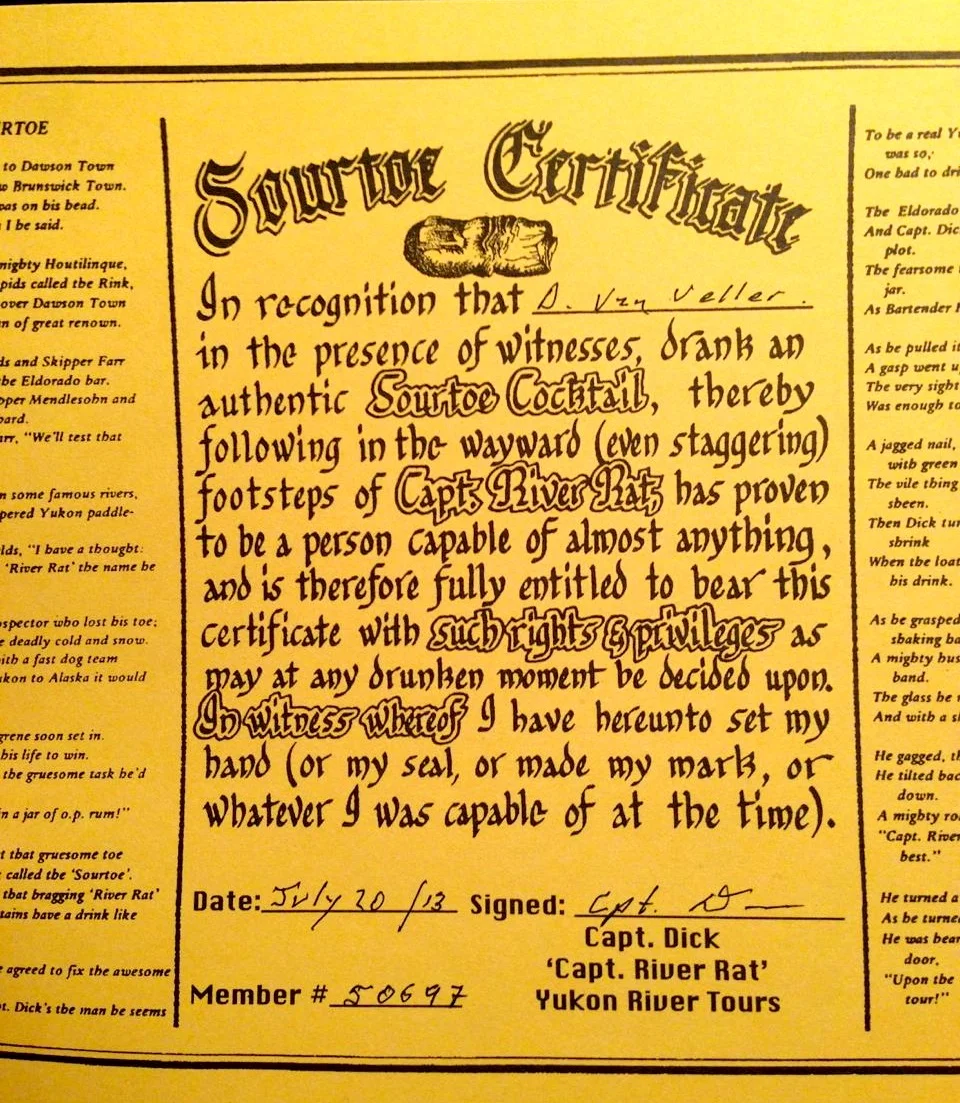 RTOE
to Dawson Town
Brunswick Town.
was on his head.
I be said.
mighty Houtilinque,
pids called the Rink,
over Dawson Town
n of great renown.
ds and Skipper Farr
the Eldorado bar.
pper Mendlesohn and
oard.
arr, "We'll test that
n some famous rivers,
pered Yukon paddle-
lds, "I have a thought:
'River Rat' the name be
ospector who lost his toe;
e deadly cold and snow.
with a fast dog team
ukon to Alaska it would
grene soon set in.
his life to win.
the gruesome task he'd
n a jar of o.p. rum!"
t that gruesome toe
called the 'Sourtoe'.
that bragging 'River Rat'
tains have a drink like
e agreed to fix the awesome
pt. Dick's the man he seems
Sourtoe Certificate
In recognition that D. Van Veller.
in the presence of witnesses, drank an
authentic Sourtoe Cocktail, thereby
following in the wayward (even staggering)
footsteps of Capt. River Rat, has proven
to be a person capable of almost anything,
and is therefore fully entitled to bear this
certificate with such rights & privileges as
may at any drunken moment be decided upon.
In witness whereof I have hereunto set my
hand (or my seal, or made my mark, or
whatever I was capable of at the time).
Date: July 20/13 Signed: Cpt. D
Capt. Dick
'Capt. River Rat'
Member # 50697
Yukon River Tours
To be a real Y
was so,
One had to dri
The Eldorado
And Capt. Dic
plot.
The fearsome
jar.
As Bartender
As he pulled it
A gasp went u
The very sight
Was enough to
A jagged nail,
with green
The vile thing
sheen.
Then Dick tur
shrink
When the loat
his drink.
As he grasped
shaking ba
A mighty hus
band.
The glass he
And with a sl
He gagged, th
He tilted bac
down.
A mighty roa
"Capt. River
best."
He turned a
As he turne
He was bear
door,
"Upon the
tour!"